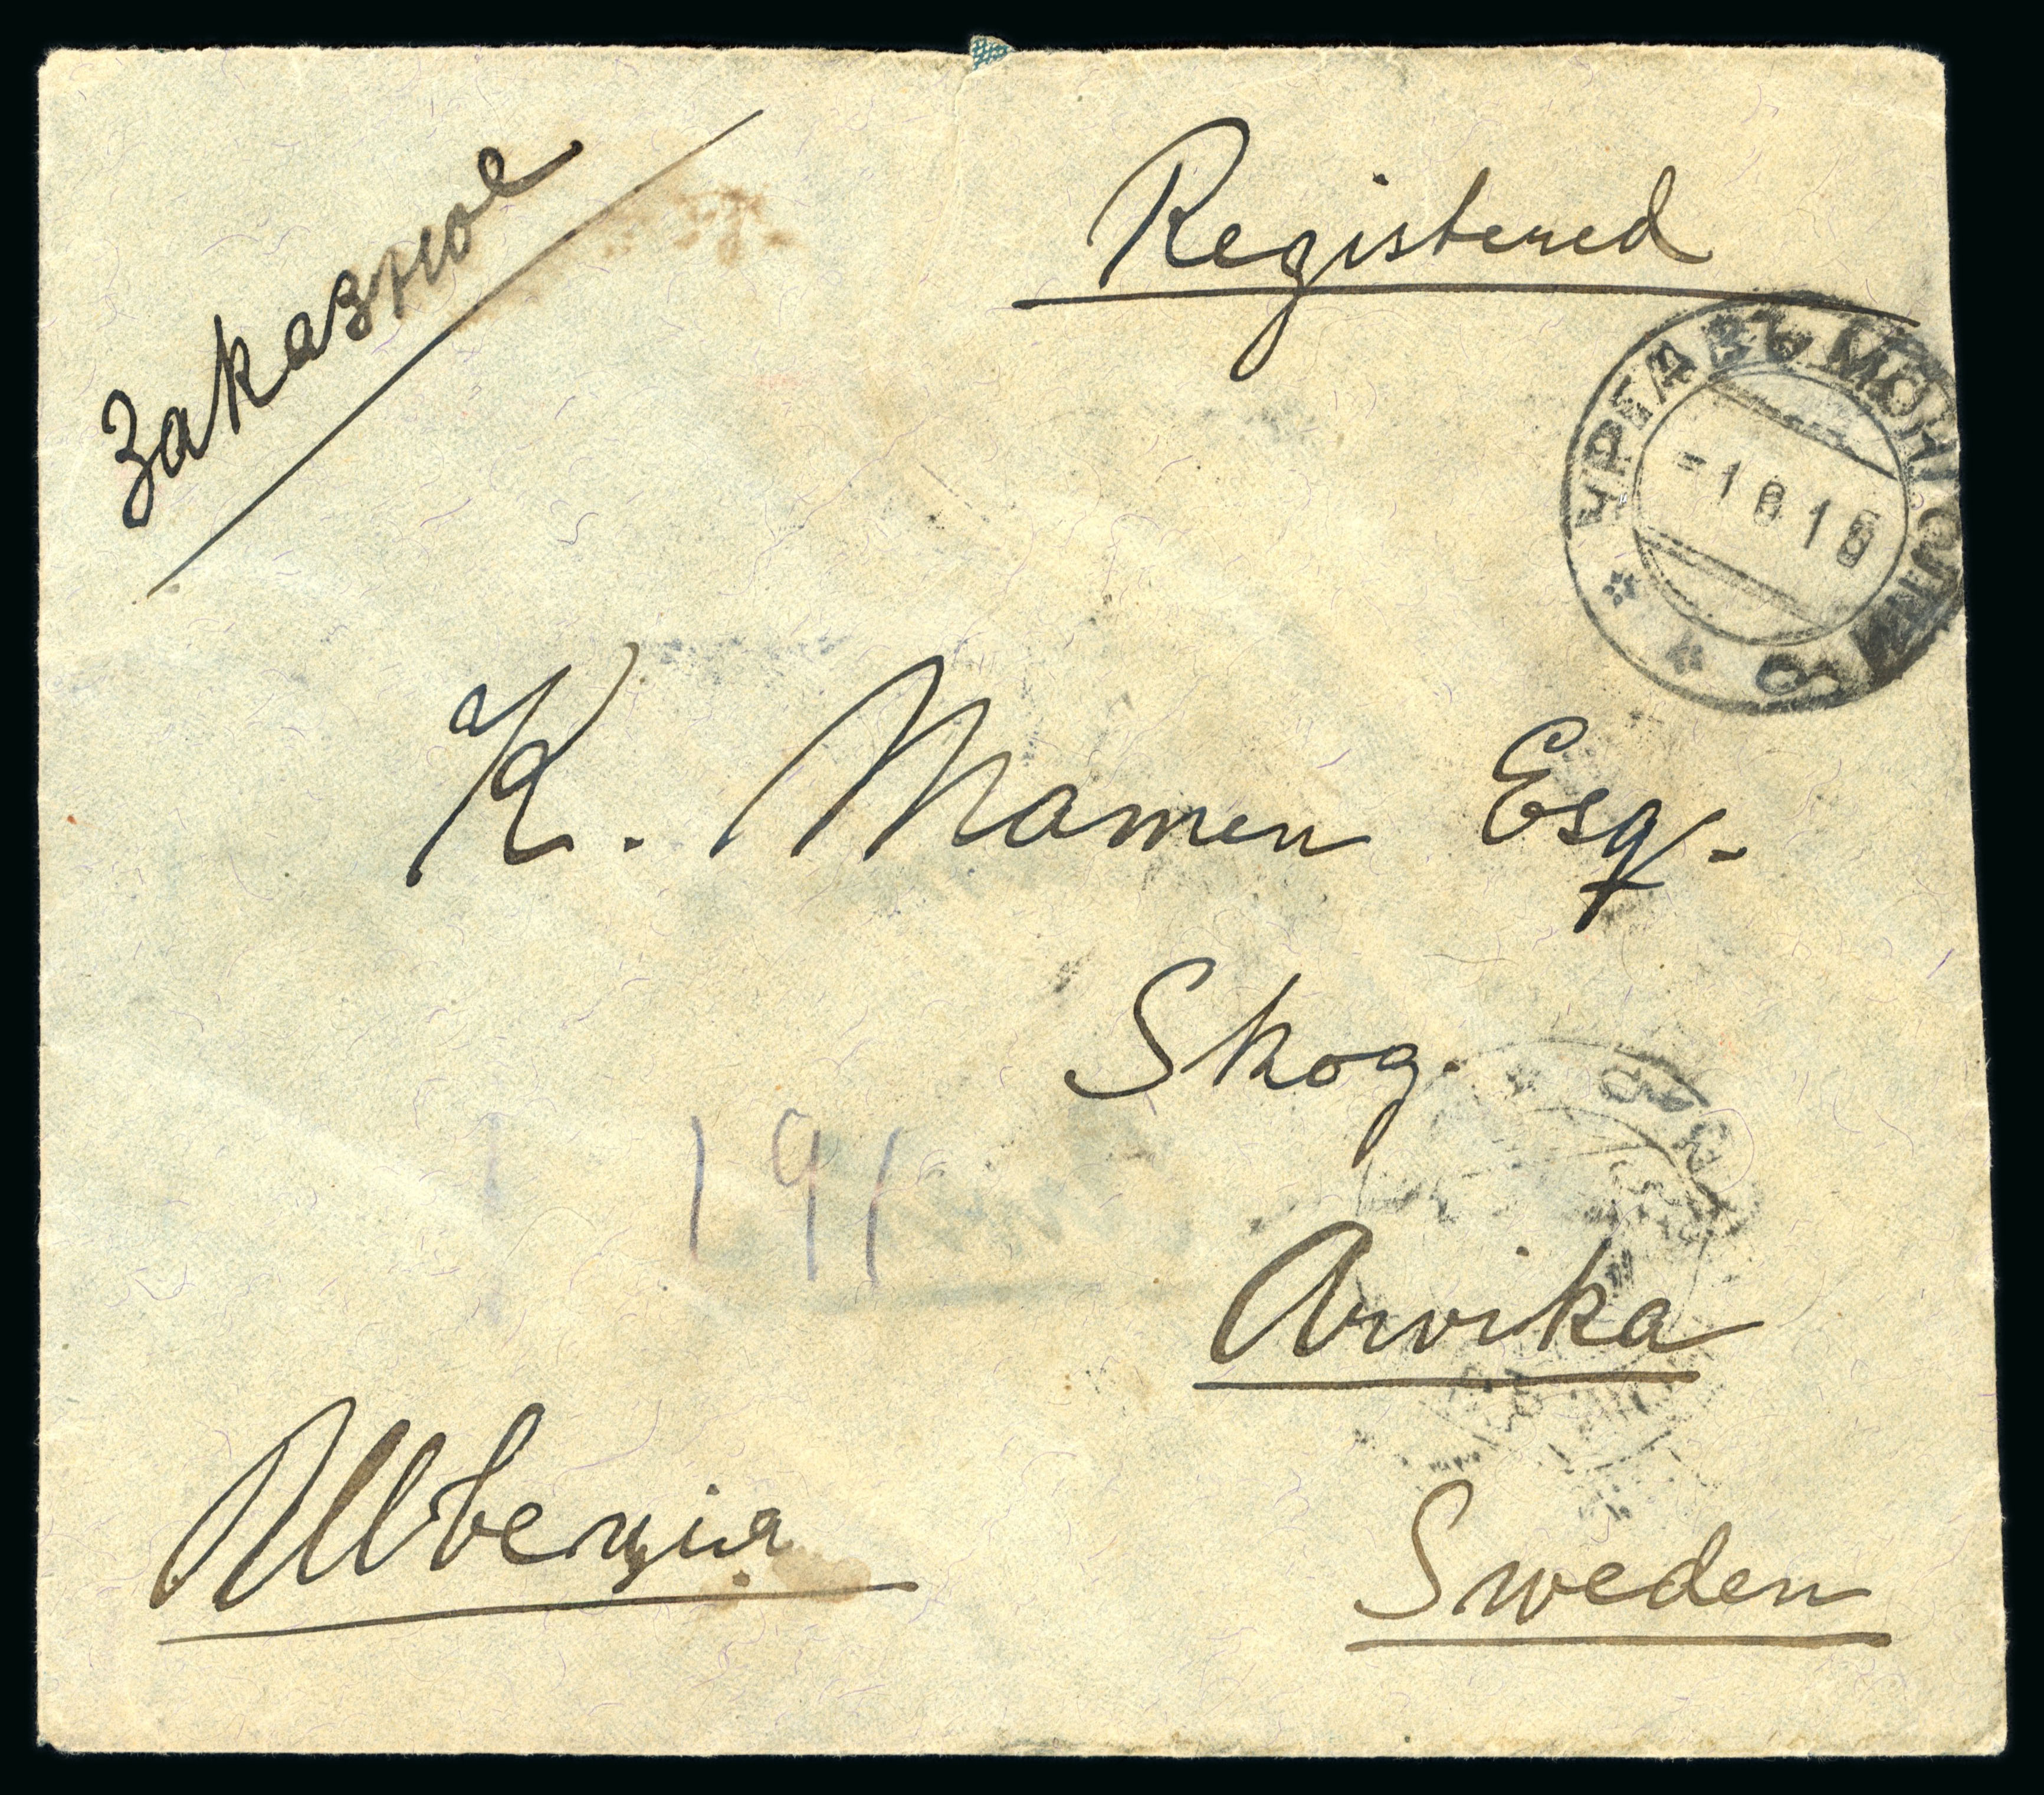 Заказное
Registered
УРГА ВЪ МОНГОЛІИ
-1 6 16
K. Mamen Esq.
Skog.
191
Arvika
Швеція
Sweden